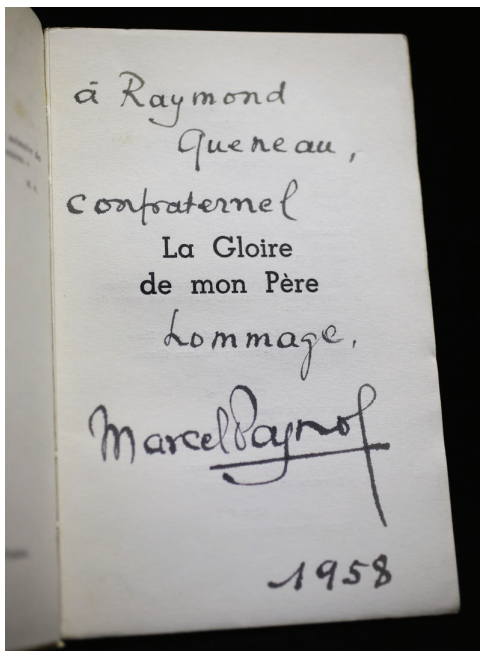 à Raymond
Queneau,
confraternel
La Gloire
de mon Père
hommage.
Marcel Pagnol
1958